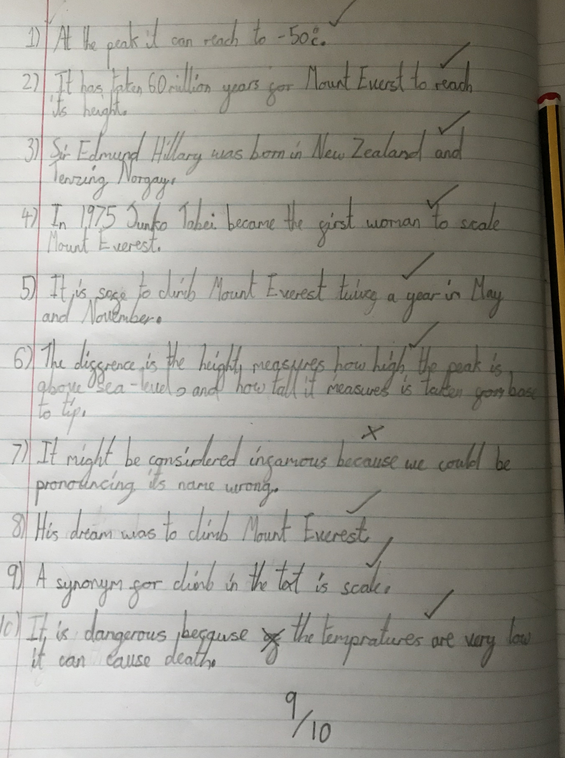 1) At the peak it can reach to -50c.
2) It has taken 60 million years for Mount Everst to reach
its height.
3) Sir Edmund Hillary was born in New Zealand and
Tenzing Norgay.
4) In 1975 Junko Tabei became the first woman to scale
Mount Everest.
5) It is safe to climb Mount Everest twice a year in May
and November.
6) The diffrence is the height, measures how high the peak is
above sea-level, and how tall it measures is taken from base
to tip.
7) It might be considered infamous because we could be
pronouncing its name wrong.
8) His dream was to climb Mount Everest
9) A synonym for climb in the text is scale.
10) It is dangerous because the tempratures are very low
it can cause death.
9/10